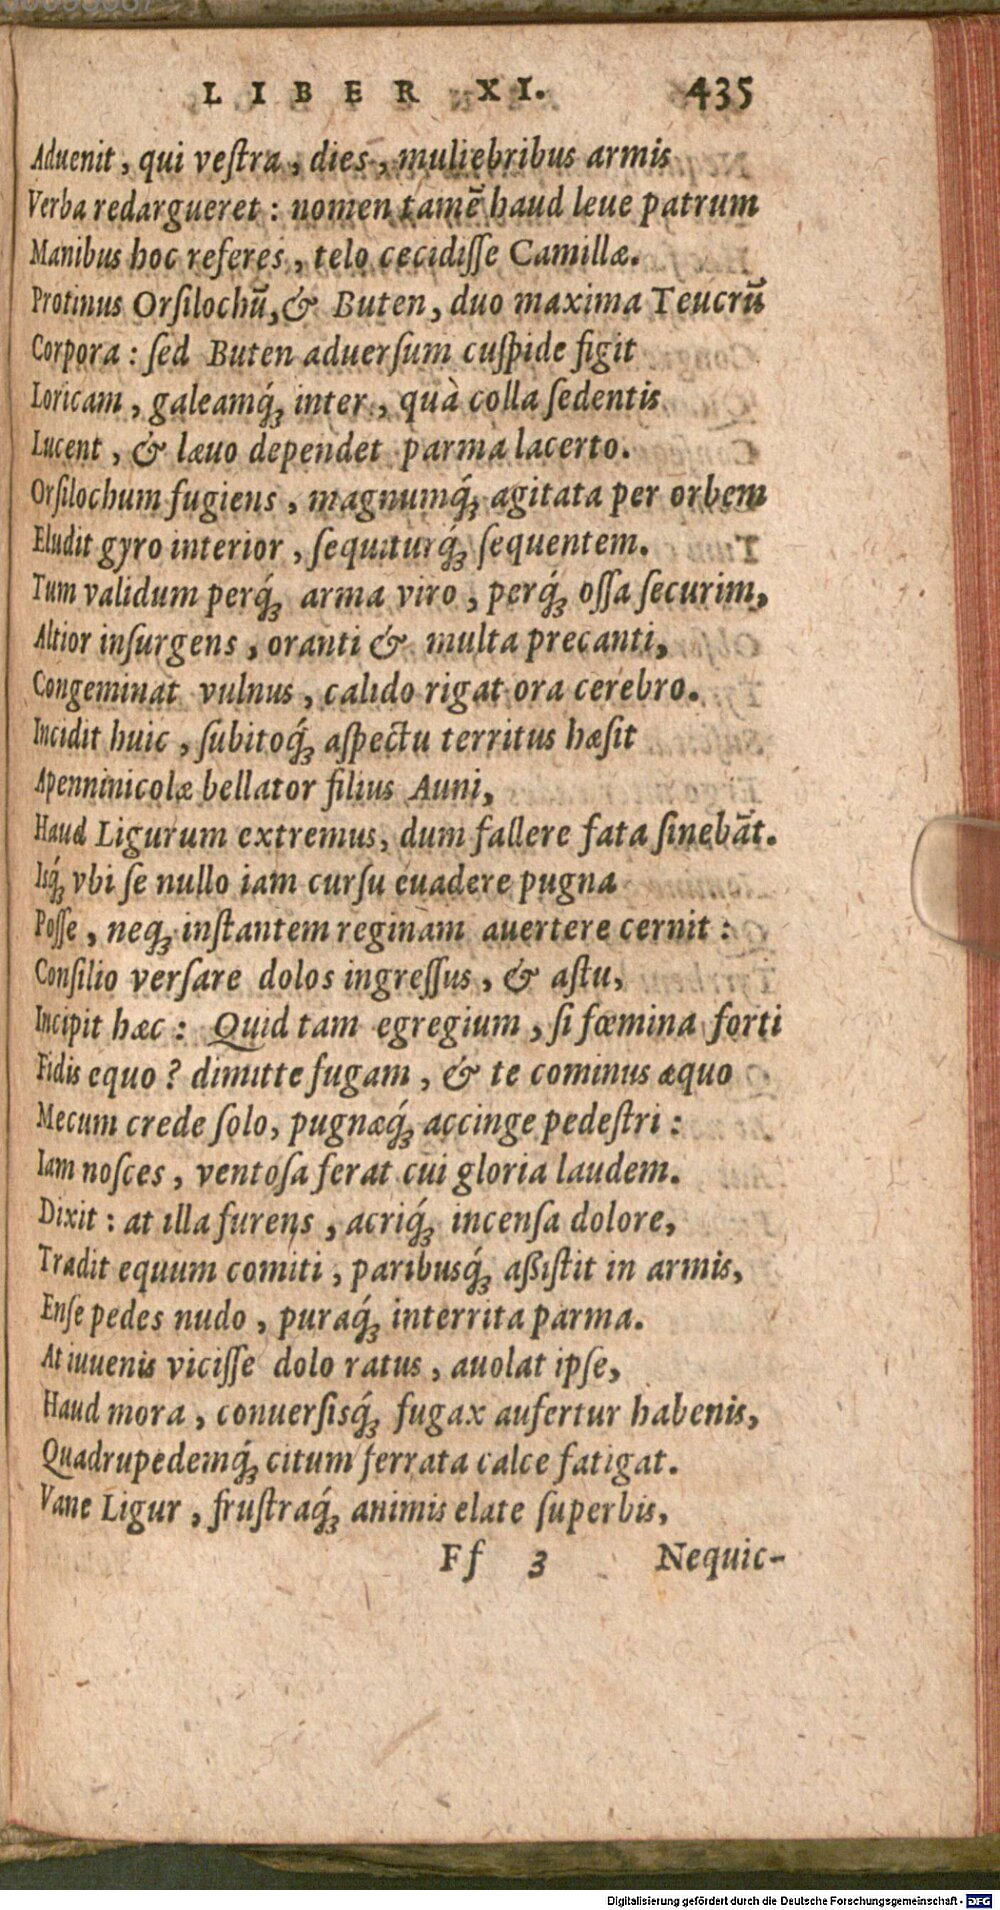 LIBER XI. 435
Aduenit, qui veſtra, dies, muliebribus armis
Verba redargueret: nomen tamē haud leue patrum
Manibus hoc referes, telo cecidiſſe Camillæ.
Protinus Orſilochū, & Buten, duo maxima Teucrū
Corpora: ſed Buten aduerſum cuſpide figit
Loricam, galeamq́; inter, quà colla ſedentis
Lucent, & læuo dependet parma lacerto.
Orſilochum fugiens, magnumq́; agitata per orbem
Eludit gyro interior, ſequiturq́; ſequentem.
Tum validum perq́; arma viro, perq́; oſſa ſecurim,
Altior inſurgens, oranti & multa precanti,
Congeminat vulnus, calido rigat ora cerebro.
Incidit huic, ſubitoq́; aſpectu territus hæſit
Apenninicolæ bellator filius Auni,
Haud Ligurum extremus, dum fallere fata ſinebāt.
Iſq́; vbi ſe nullo iam curſu euadere pugna
Poſſe, neq; inſtantem reginam auertere cernit:
Conſilio verſare dolos ingreſſus, & aſtu,
Incipit hæc: Quid tam egregium, ſi fœmina forti
Fidis equo? dimitte fugam, & te cominus æquo
Mecum crede ſolo, pugnæq́; accinge pedeſtri:
Iam noſces, ventoſa ferat cui gloria laudem.
Dixit: at illa furens, acriq́; incenſa dolore,
Tradit equum comiti, paribusq́; aßiſtit in armis,
Enſe pedes nudo, puraq́; interrita parma.
At iuuenis viciſſe dolo ratus, auolat ipſe,
Haud mora, conuerſisq́; fugax aufertur habenis,
Quadrupedemq́; citum ferrata calce fatigat.
Vane Ligur, fruſtraq́; animis elate ſuperbis,
Ff 3 Nequic-
Digitalisierung gefördert durch die Deutsche Forschungsgemeinschaft - DFG